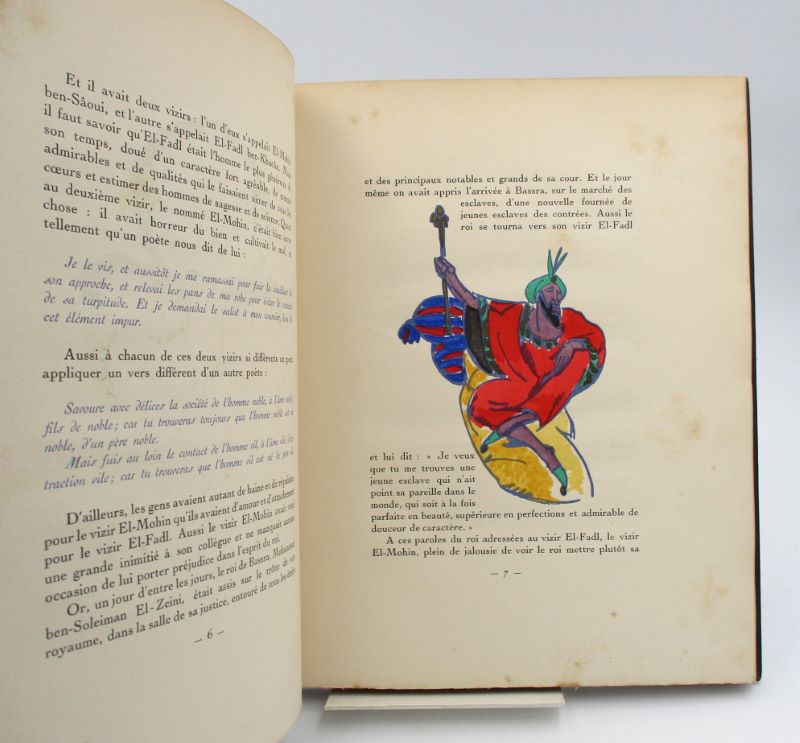 Et il avait deux vizirs : l'un d'eux s'appelait El-Mohin
ben-Sâoui, et l'autre s'appelait El-Fadl ben-Khacân. Mais
il faut savoir qu'El-Fadl était l'homme le plus généreux de
son temps, doué d'un caractère fort agréable, de mœurs
admirables et de qualités qui le faisaient aimer de tous les
cœurs et estimer des hommes de sagesse et de science. Quant
au deuxième vizir, le nommé El-Mohin, c'était bien autre
chose : il avait horreur du bien et cultivait le mal, et
tellement qu'un poète nous dit de lui :
Je le vis, et aussitôt je me ramassai pour fuir la souillure de
son approche, et relevai les pans de ma robe pour éviter le contact
de sa turpitude. Et je demandai le salut à mon coursier, loin de
cet élément impur.
Aussi à chacun de ces deux yizirs si différents on peut
appliquer un vers différent d'un autre poète :
Savoure avec délices la société de l'homme noble, à l'âme noble,
fils de noble; car tu trouveras toujours que l'homme noble est né
noble, d'un père noble.
Mais fuis au loin le contact de l'homme vil, à l'âme vile, d'ex-
traction vile; car tu trouveras que l'homme vil est né de père vil.
D'ailleurs, les gens avaient autant de haine et de répulsion
pour le vizir El-Mohin qu'ils avaient d'amour et d'attachement
pour le vizir El-Fadl. Aussi le vizir El-Mohin avait voué
une grande inimitié à son collègue et ne manquait aucune
occasion de lui porter préjudice dans l'esprit du roi.
Or, un jour d'entre les jours, le roi de Bassra, Mohammad
ben-Soleiman El-Zeini, était assis sur le trône de son
royaume, dans la salle de sa justice, entouré de tous les émirs
— 6 —
et des principaux notables et grands de sa cour. Et le jour
même on avait appris l'arrivée à Bassra, sur le marché des
esclaves, d'une nouvelle fournée de
jeunes esclaves des contrées. Aussi le
roi se tourna vers son vizir El-Fadl
et lui dit : « Je veux
que tu me trouves une
jeune esclave qui n'ait
point sa pareille dans le
monde, qui soit à la fois
parfaite en beauté, supérieure en perfections et admirable de
douceur de caractère. »
A ces paroles du roi adressées au vizir El-Fadl, le vizir
El-Mohin, plein de jalousie de voir le roi mettre plutôt sa
— 7 —